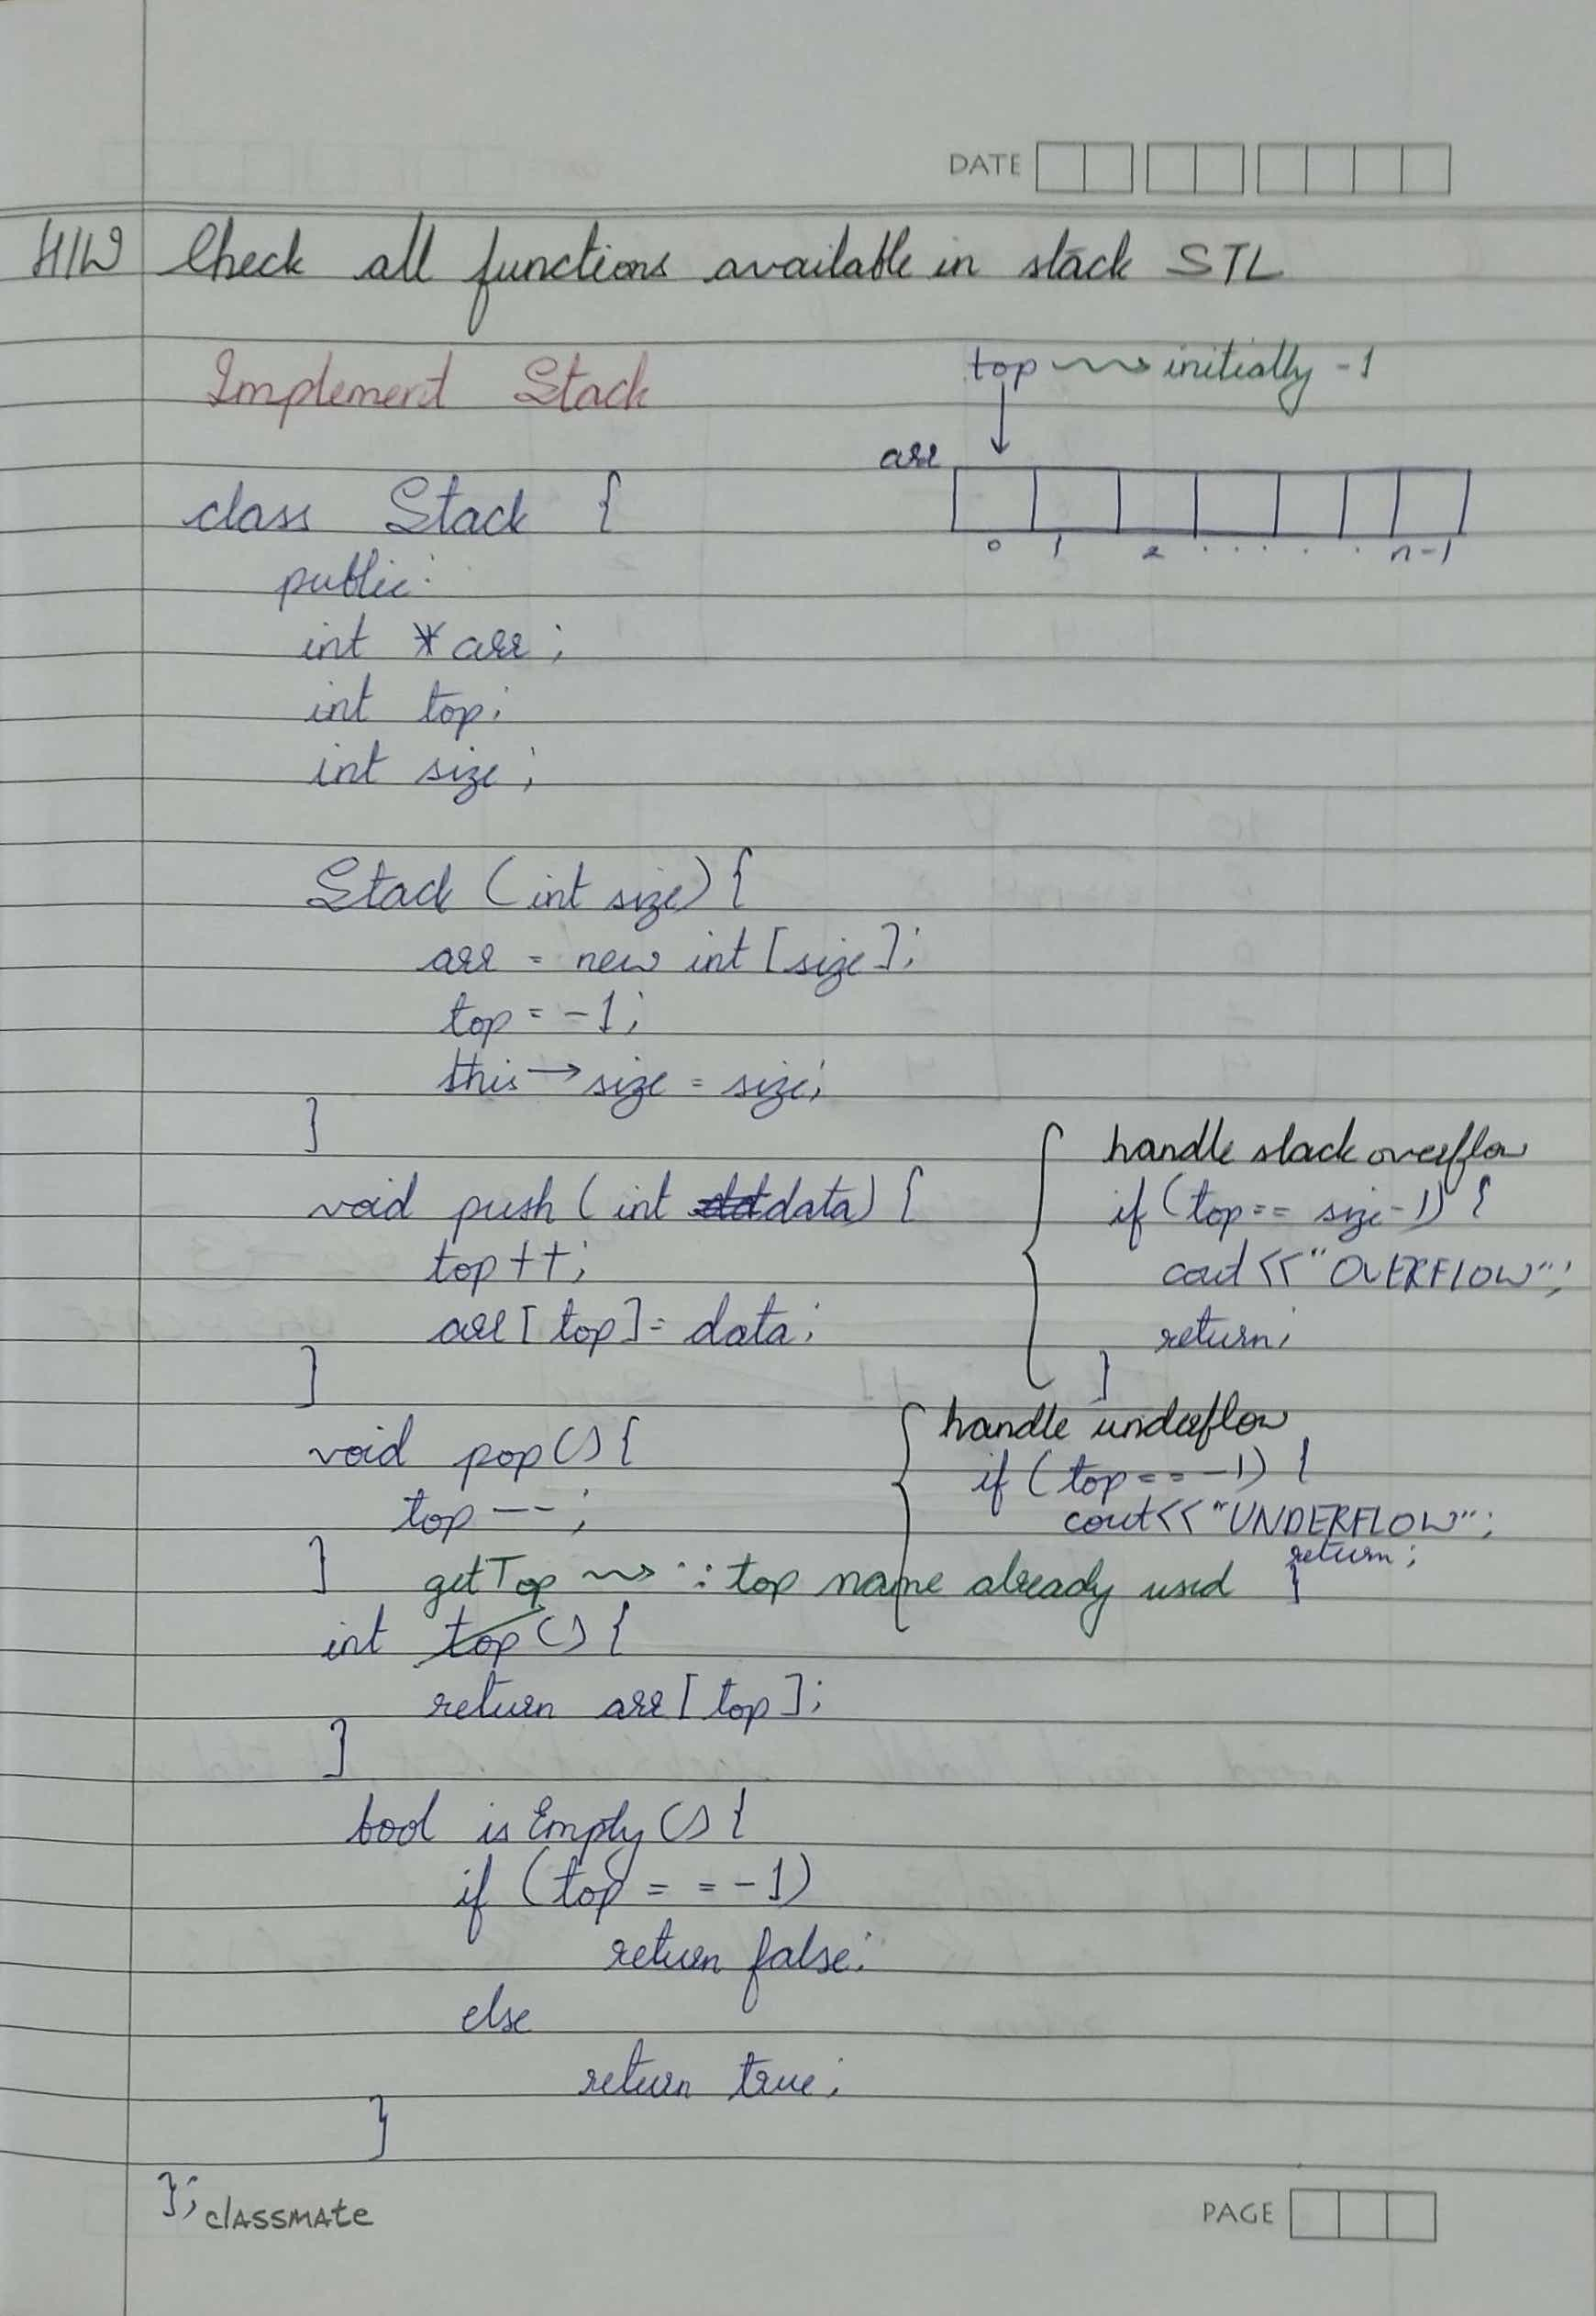 DATE
H/W Check all functions available in stack STL
Implement Stack
top ⇝ initially -1
arr
0 1 2 . . . . . n-1
class Stack {
public:
int *arr;
int top;
int size;
Stack (int size) {
arr = new int [size];
top = -1;
this → size = size;
}
void push (int data) {
top ++;
arr [top] = data;
}
handle stack overflow
if (top == size-1) {
cout << "OVERFLOW";
return;
}
void pop () {
top --;
}
handle underflow
if (top == -1) {
cout << "UNDERFLOW";
return;
}
getTop ⇝ ∵ top name already used
int top () {
return arr [top];
}
bool isEmpty () {
if (top == -1)
return false;
else
return true;
}
};
classmate
PAGE